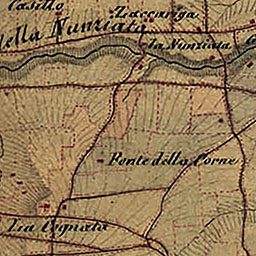 Casillo
Zaccariga
della Nunziata
la Nunziata
Fonte della Corne